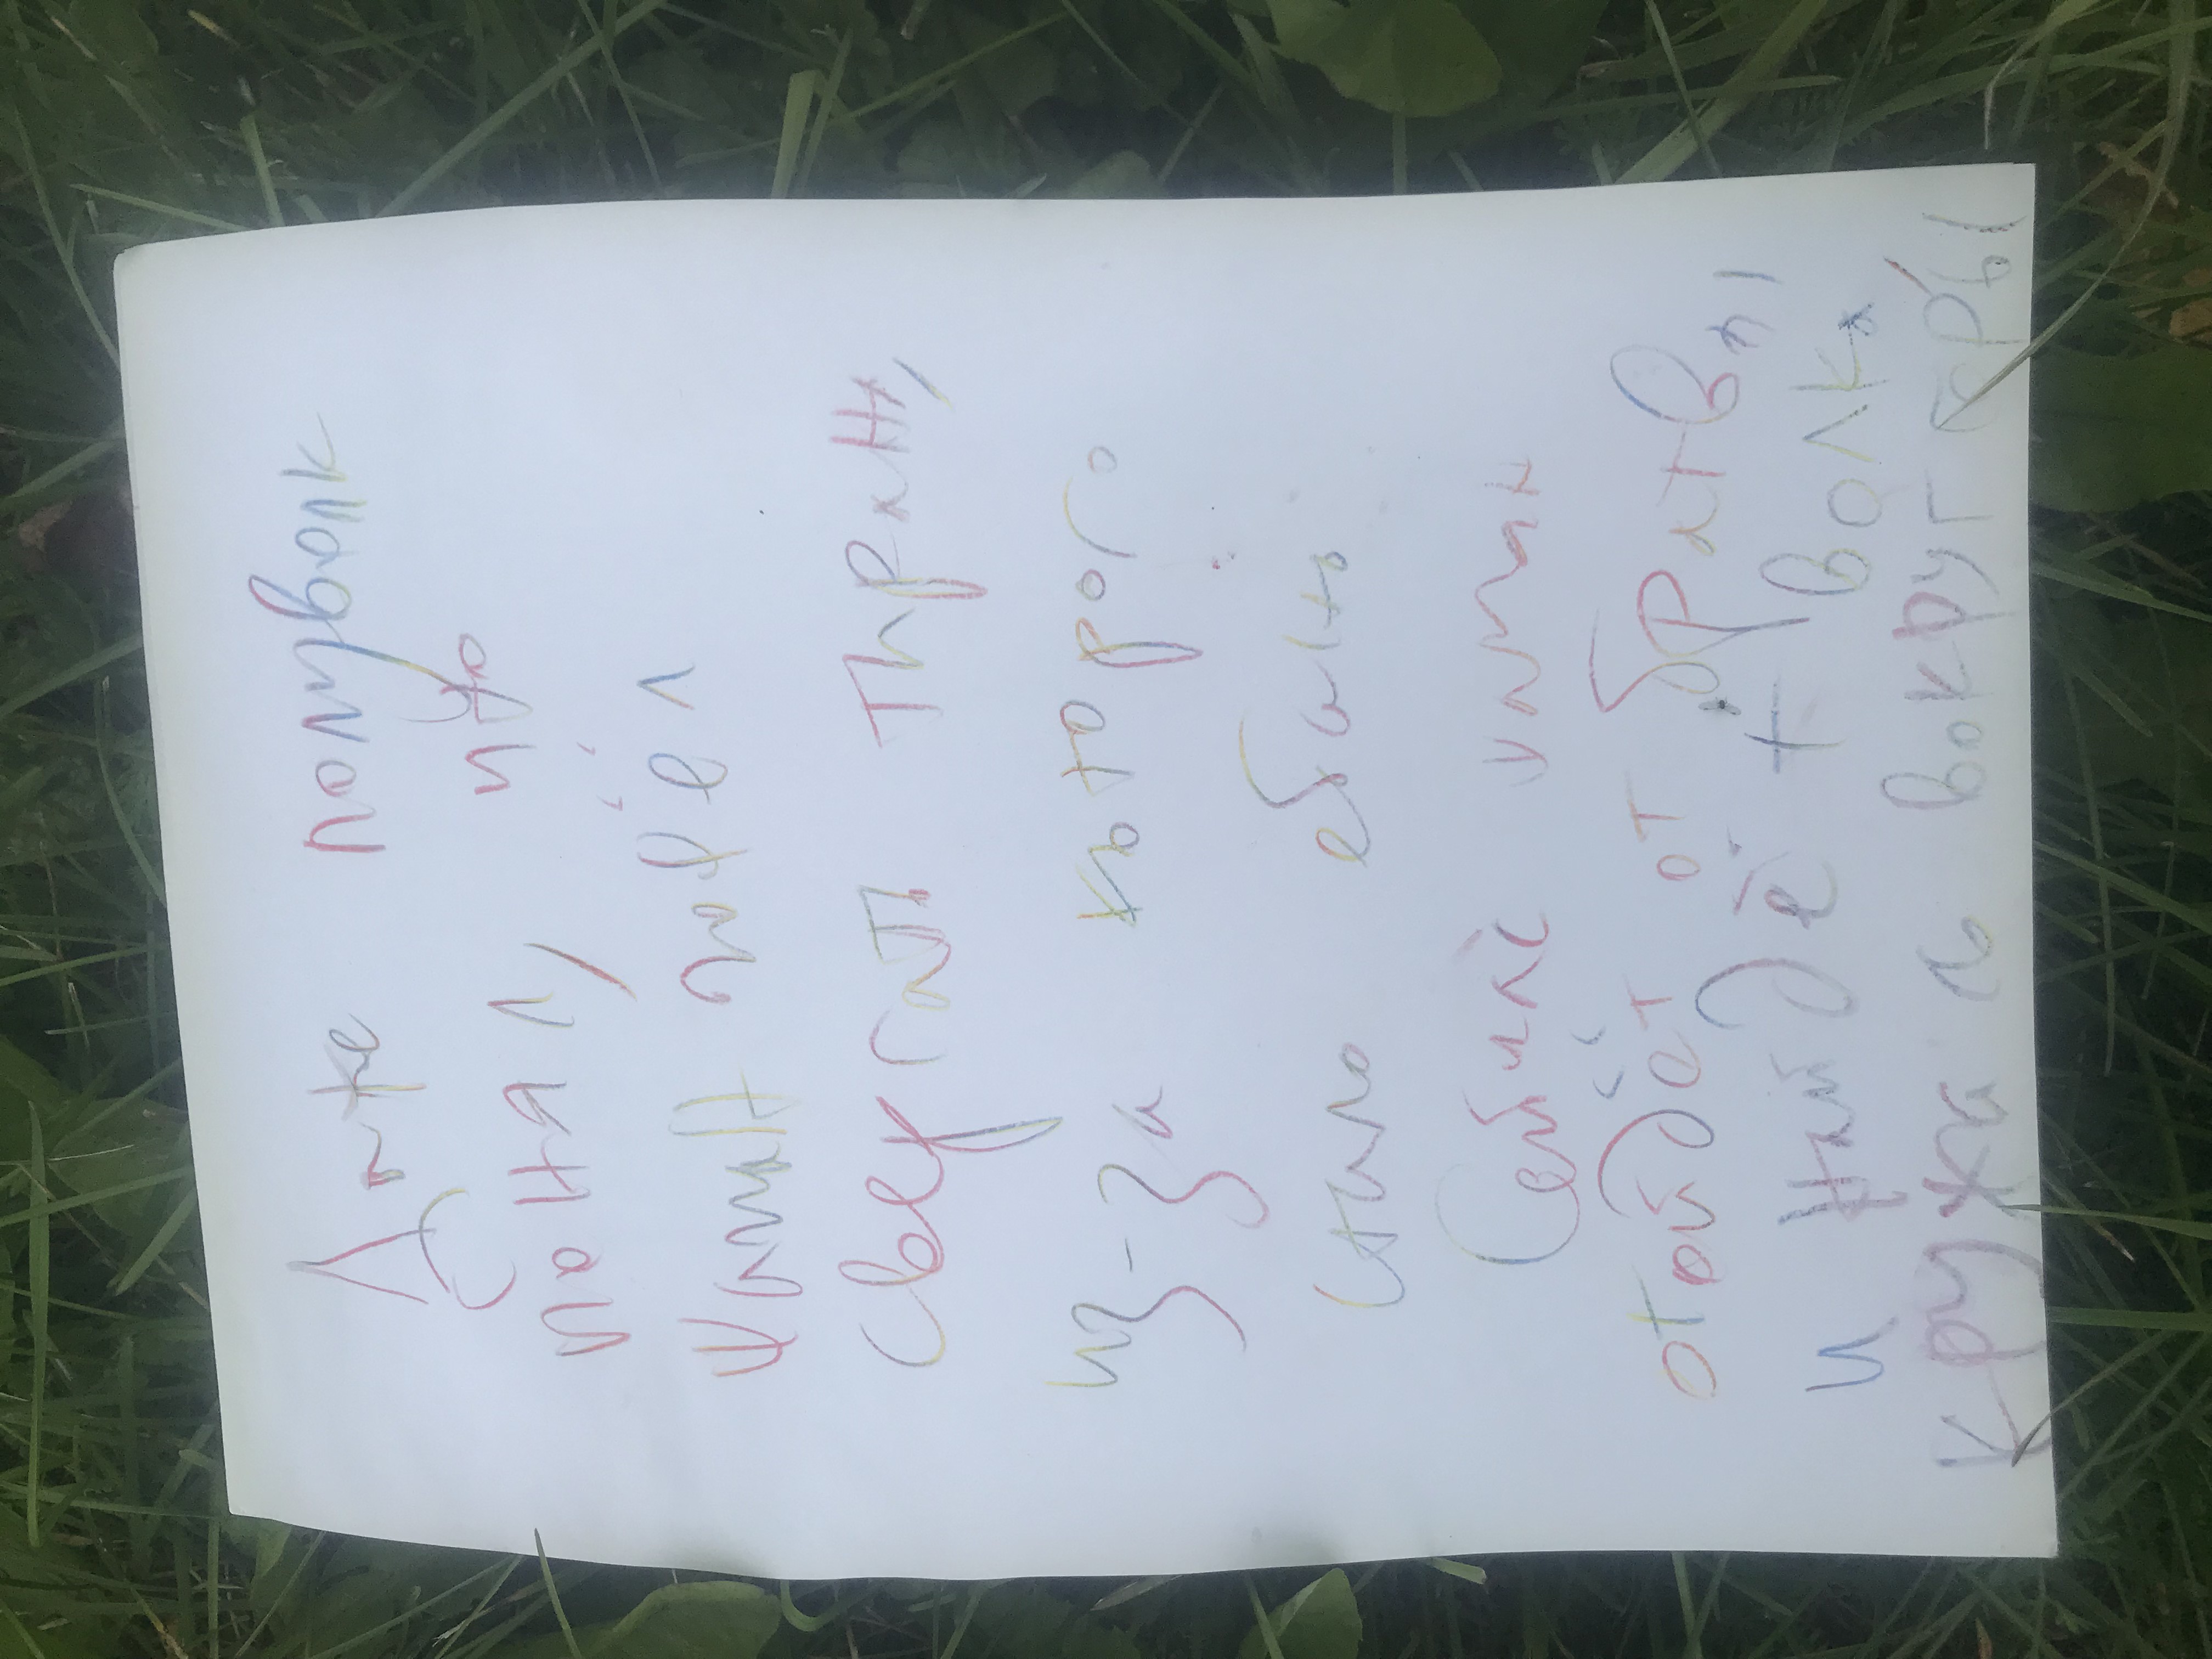 Даже полуволк
понял, что
шаман пошёл
свергать тирана,
из-за которого
стало ебано
Сейчас шаман
отойдёт от братвы,
и найдёт волка,
кружась вокруг